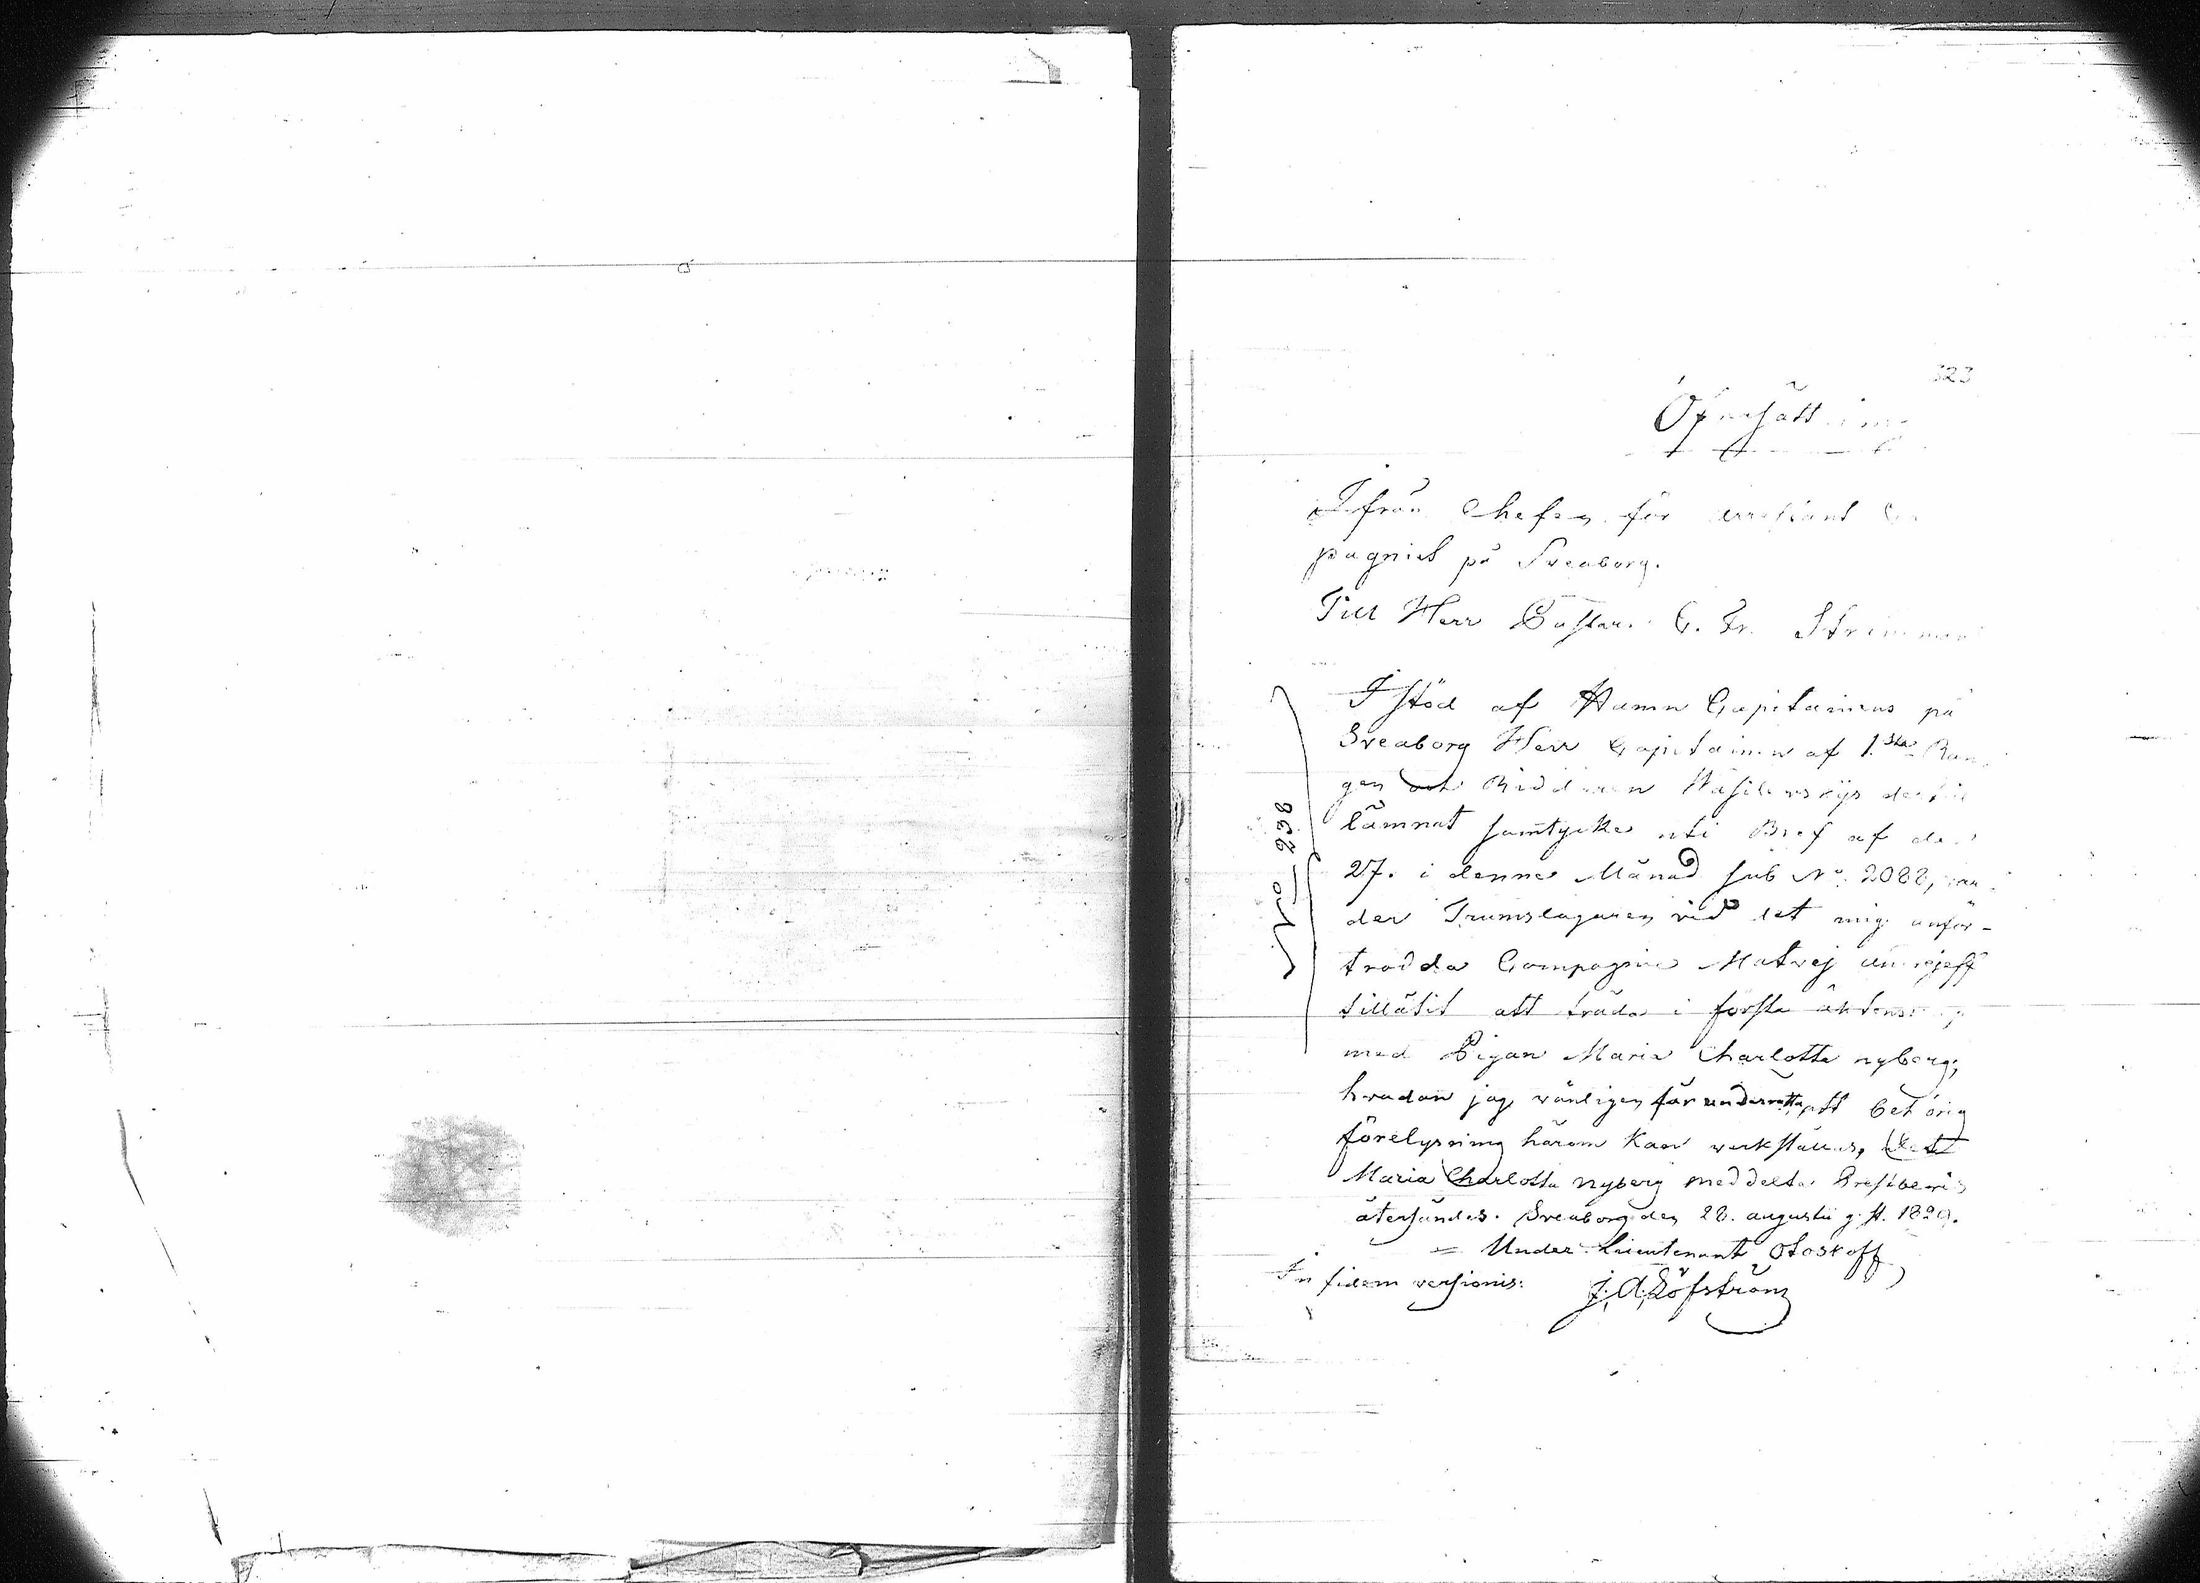 323
Öfversättning
Ifrån Chefen för arrestant
pagniet på Sveaborg.
Till Herr Pastor C. Fr. Strömman
I stöd af Hamn Capitainens på
Sveaborg Herr Capitainen af 1.sta Ran
gen och Riddaren Wasilewskijs dertill
lämnat samtycke uti Bref af den
27. i denne Månad sub No. 2088,
der Trumslagaren vid det mig anför-
trodda Compagnie Matvej
tillåtit att träda i första äktenskap
med Pigan Maria Charlotta nyberg;
hvadan jag vänligen får underrätta, att behörig
förelysning härom kan verkställas,
Maria Charlotta nyberg meddelta Prestbevis
återsändes. Sveaborg den 28. augusti g. st. 1829.
= Under Lieutenant Otoskoff
In fidem versionis: J. A. Löfström
No 238